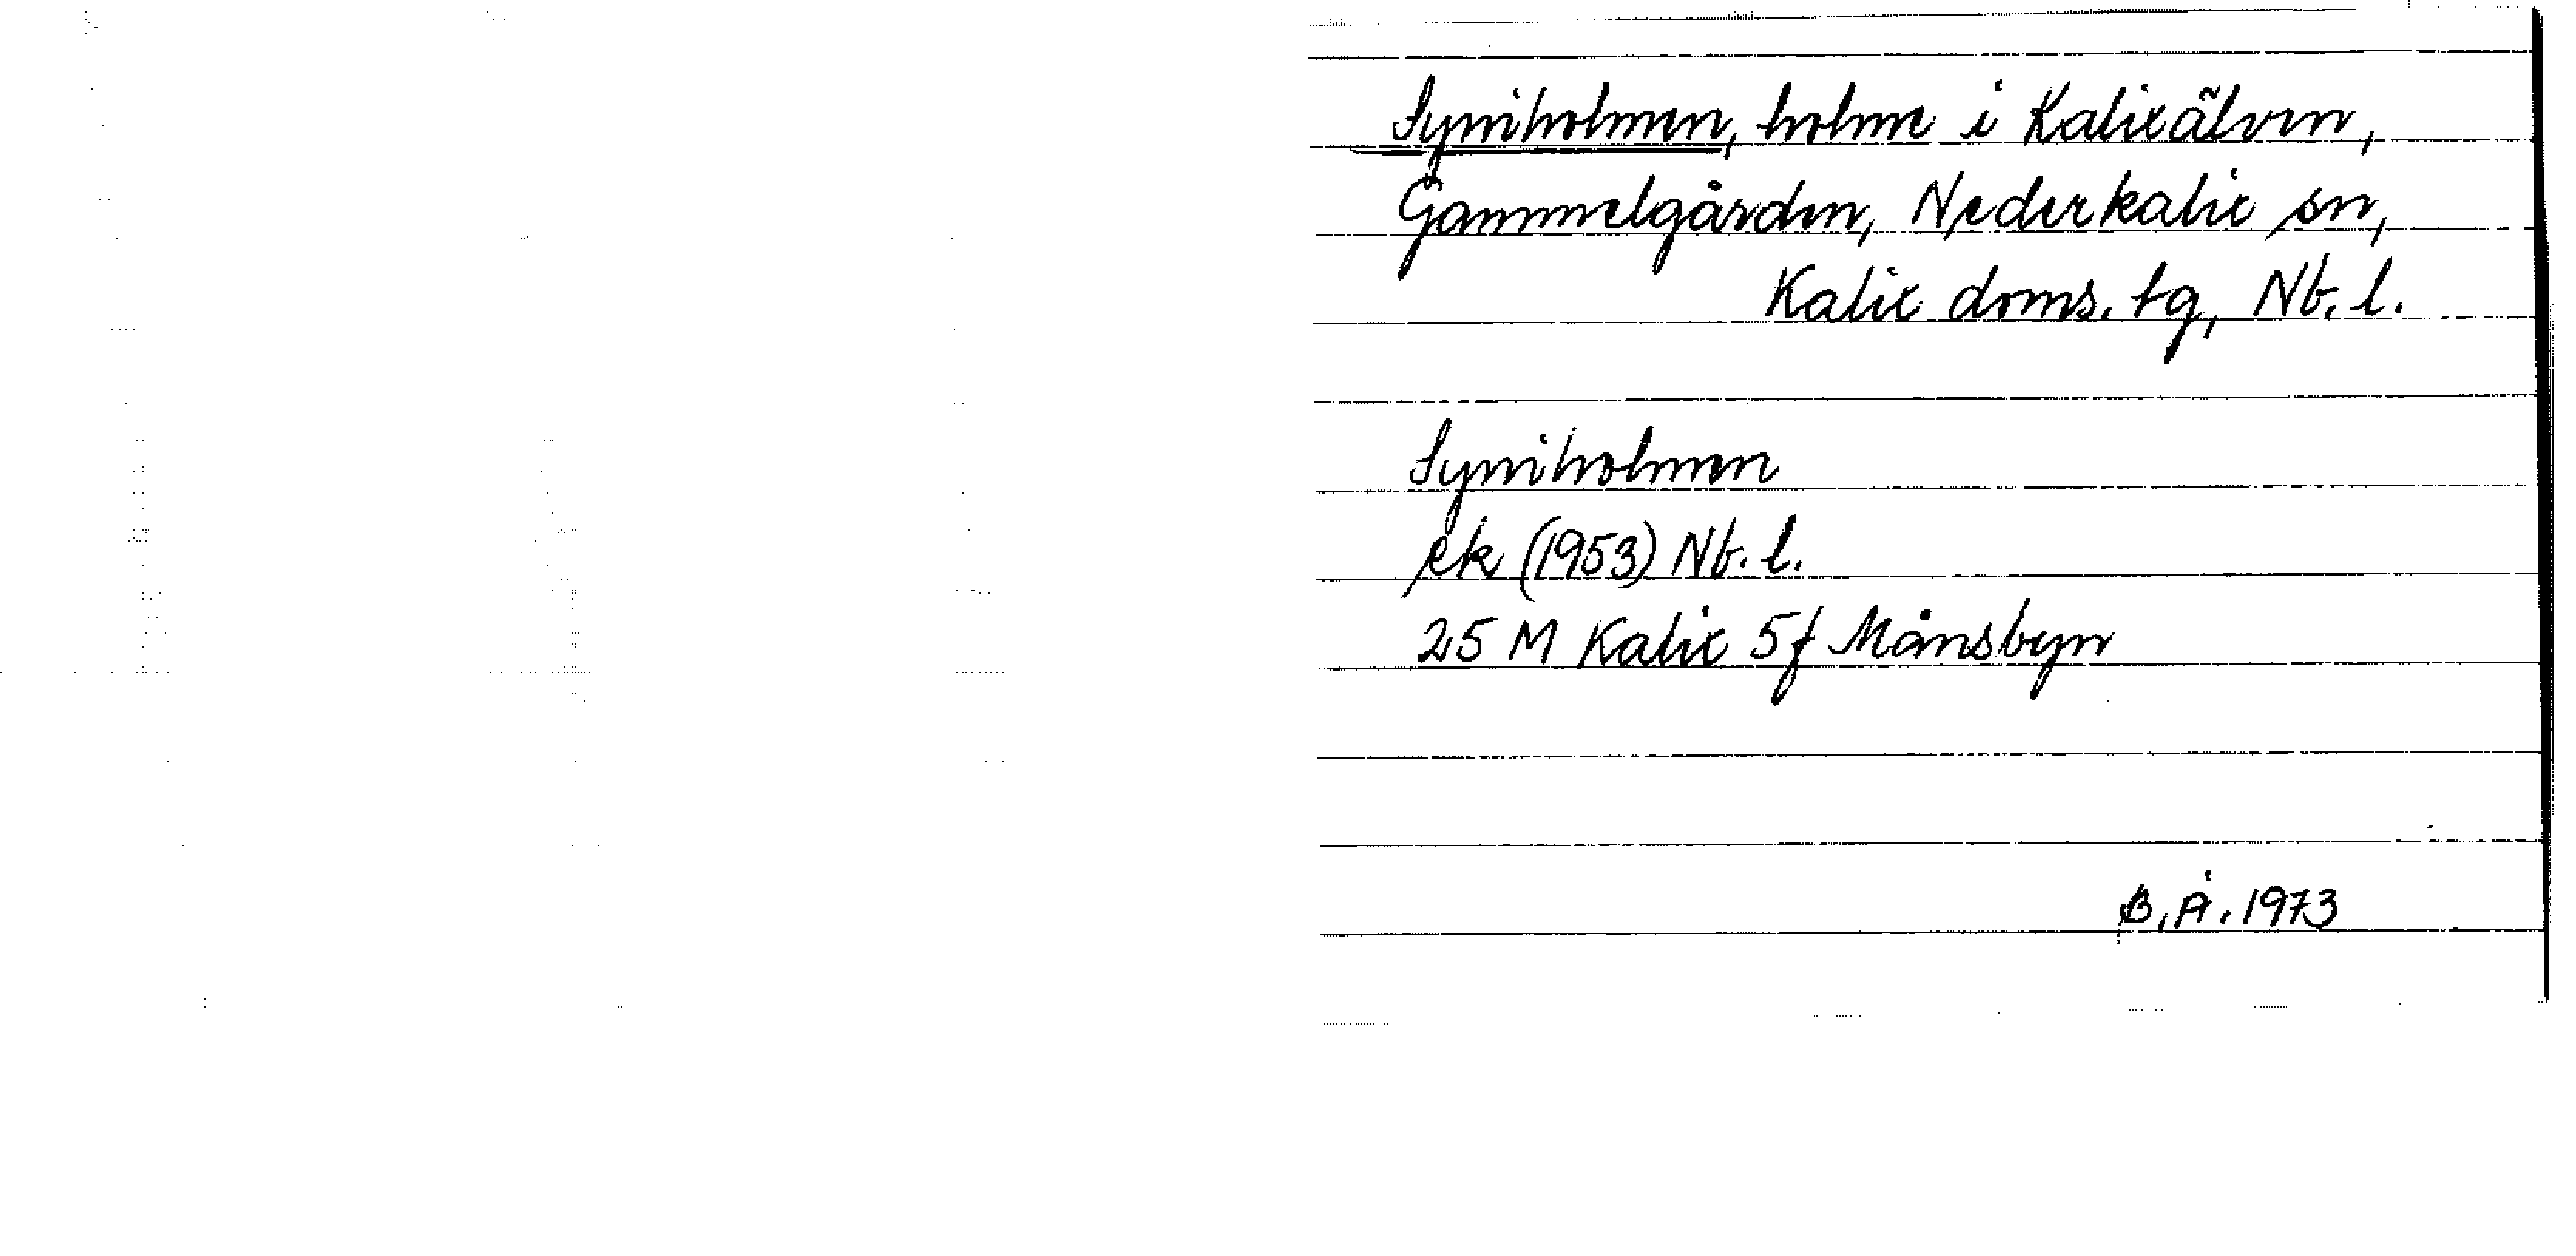 Syniholmen, holme i Kalixälven,
Gammelgården, Nederkalix sn,
Kalix doms. tg, Nb. l.
Syniholmen
ek (1953) Nb. l.
25 M Kalix 5f Månsbyn
B. Å. 1973